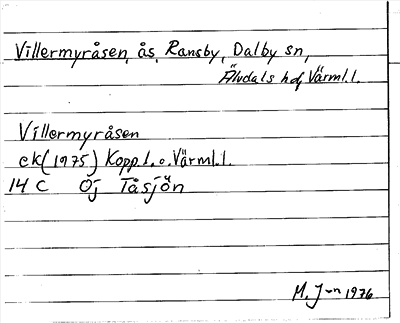 Villermyråsen, ås, Ransby, Dalby sn,
Älvdals hd, Värml. l.
Villermyråsen
ek (1975) Kopp. l. o. Värml. l.
14 C Öj Tåsjön
M. J-n 1976